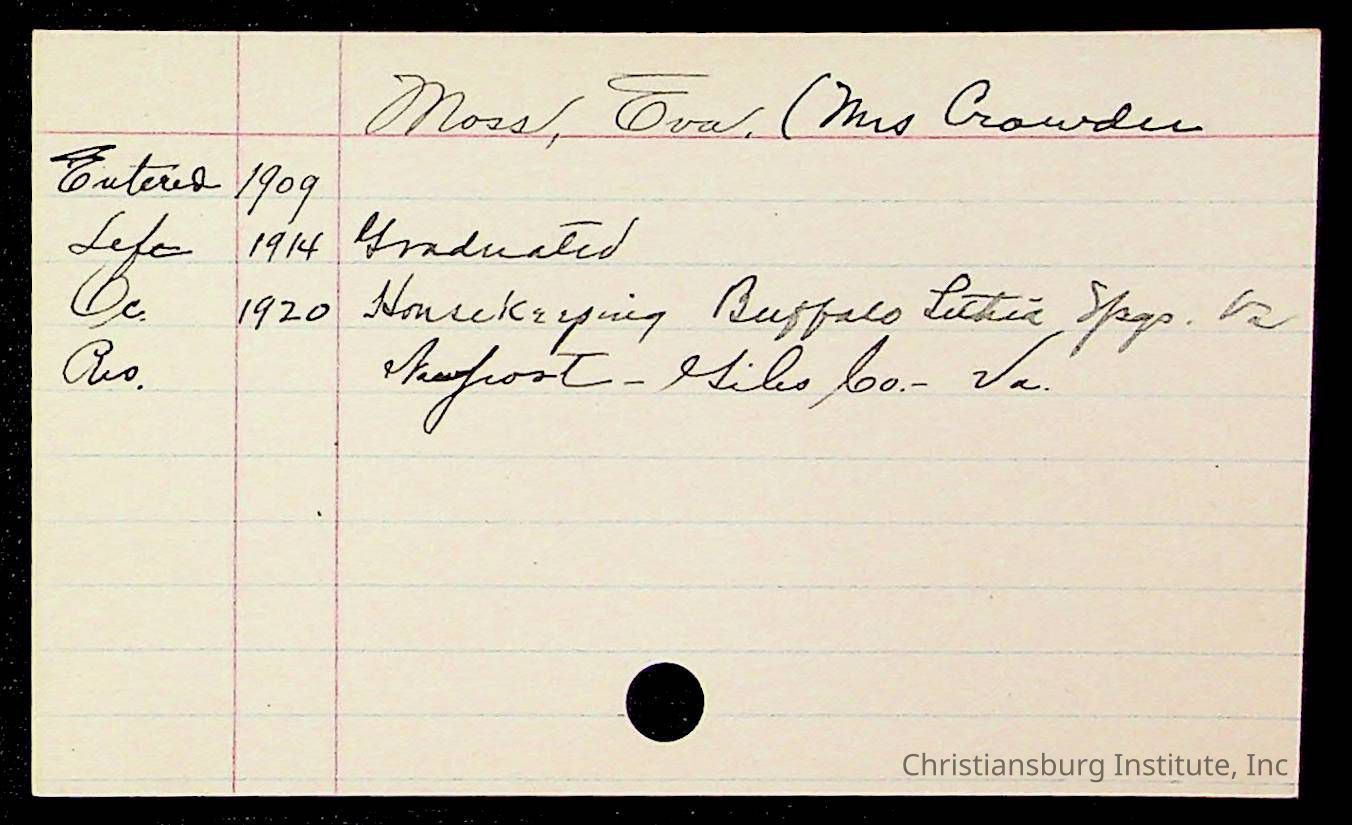 Moss, Eva. (Mrs Crowder
Entered 1909
Left 1914 Graduated
Oc. 1920 Housekeeping Buffalo Lithia Spgs. Va
Res. Newport - Giles Co. - Va.
Christiansburg Institute, Inc